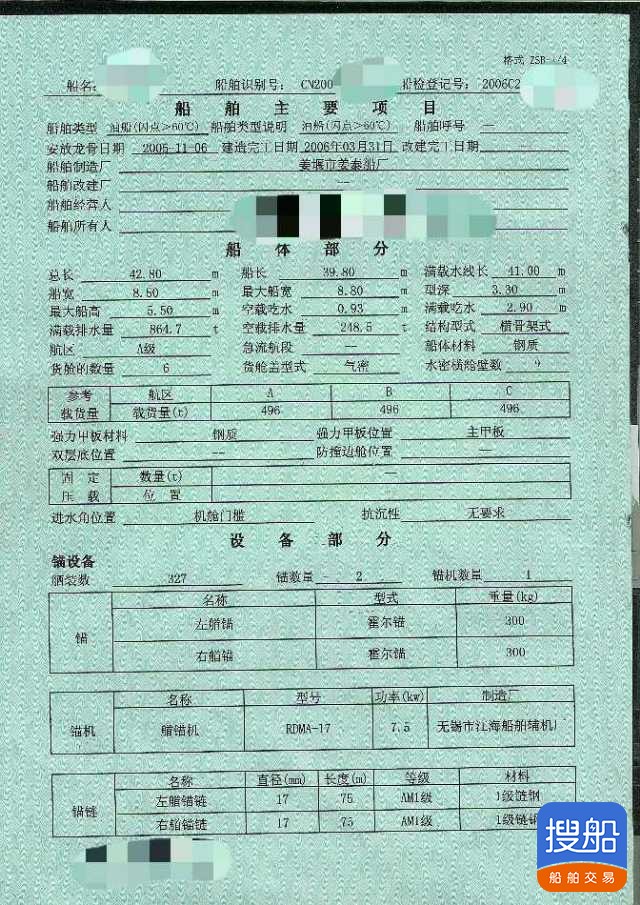 格式 ZSB-4/4
船名: 船舶识别号: CN200 船检登记号: 2006C2
船舶主要项目
船舶类型 油船(闪点>60℃) 船舶类型说明 油船(闪点>60℃) 船舶呼号 --
安放龙骨日期 2005-11-06 建造完工日期 2006年03月31日 改建完工日期 --
船舶制造厂 姜堰市姜泰船厂
船舶改建厂 --
船舶经营人
船舶所有人
船体部分
总长 42.80 m 船长 39.80 m 满载水线长 41.00 m
船宽 8.50 m 最大船宽 8.80 m 型深 3.30 m
最大船高 5.50 m 空载吃水 0.93 m 满载吃水 2.90 m
满载排水量 864.7 t 空载排水量 248.5 t 结构型式 横骨架式
航区 A级 急流航段 -- 船体材料 钢质
货舱的数量 6 货舱盖型式 气密 水密横舱壁数 9
参考 航区 A B C
载货量 载货量(t) 496 496 496
强力甲板材料 钢质 强力甲板位置 主甲板
双层底位置 -- 防撞边舱位置 --
固定 数量(t) --
压载 位置
进水角位置 机舱门槛 抗沉性 无要求
设备部分
锚设备
舾装数 327 锚数量 2 锚机数量 1
名称 型式 重量(kg)
锚 左艏锚 霍尔锚 300
右艏锚 霍尔锚 300
名称 型号 功率(kw) 制造厂
锚机 艏锚机 RDMA-17 7.5 无锡市江海船舶辅机厂
名称 直径(mm) 长度(m) 等级 材料
锚链 左艏锚链 17 75 AM1级 1级链钢
右艏锚链 17 75 AM1级 1级链钢
搜船
船舶交易